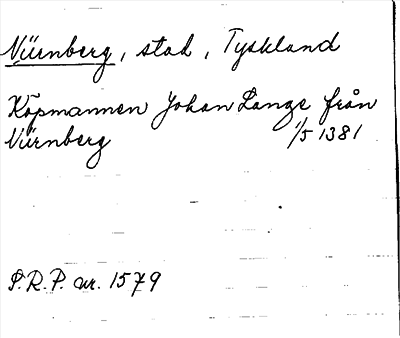 Nürnberg, stad, Tyskland
Köpmannen Johan Lange från
Nürnberg 1/5 1381
S.R.P. nr. 1579